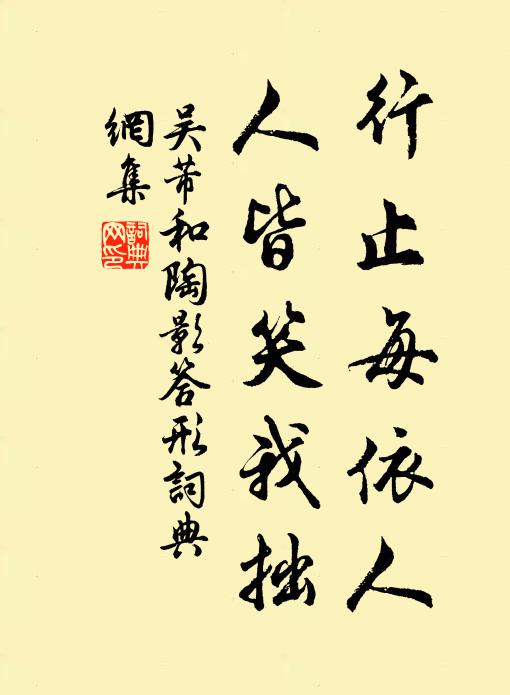 行止每依人
人皆笑我拙
吴芾和陶影答形詞典
網集
詞典網印